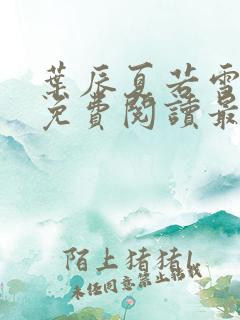 葉辰夏若雪
免費閱讀最
陌上猪猪l
未经同意禁止转载